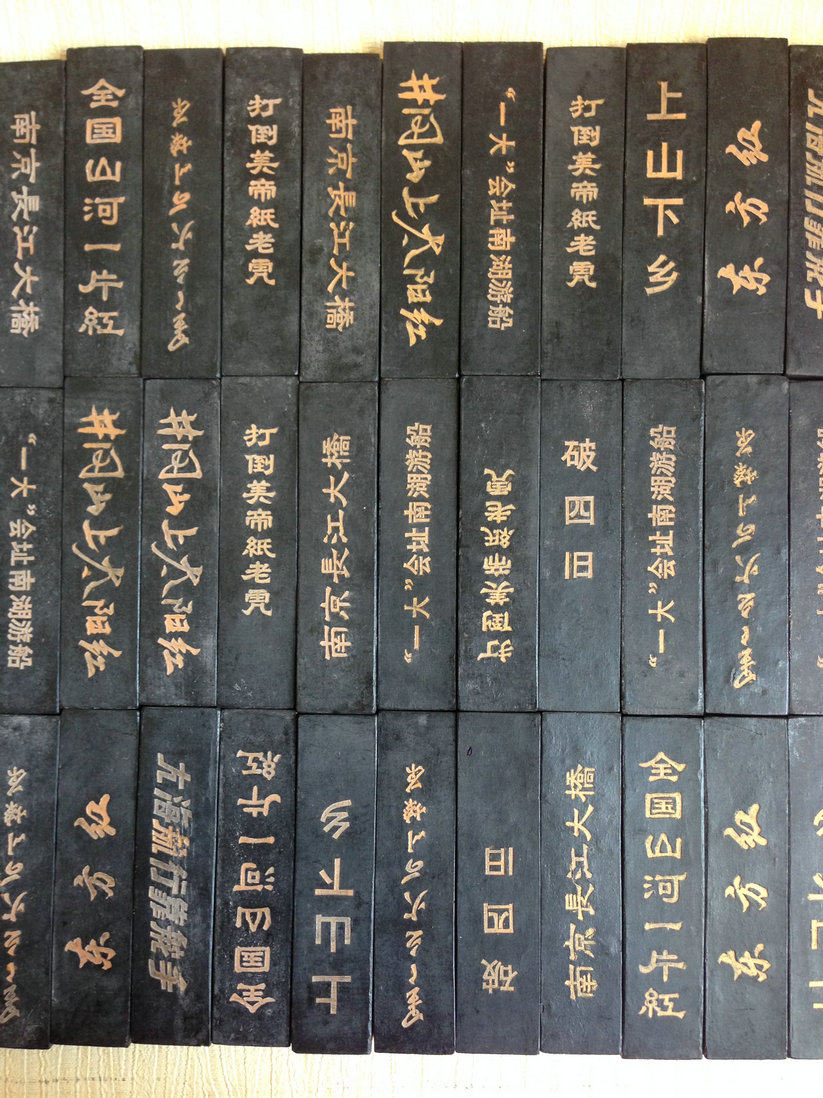 南京長江大橋
全国山河一片紅
打倒美帝紙老虎
南京長江大橋
井冈山上太阳红
“一大”会址南湖游船
打倒美帝紙老虎
上山下乡
东方红
大海航行靠舵手
“一大”会址南湖游船
井冈山上太阳红
井冈山上太阳红
打倒美帝紙老虎
南京長江大橋
“一大”会址南湖游船
打倒美帝紙老虎
破四旧
“一大”会址南湖游船
东方红
大海航行靠舵手
全国山河一片紅
上山下乡
破四旧
南京長江大橋
全国山河一片紅
东方红